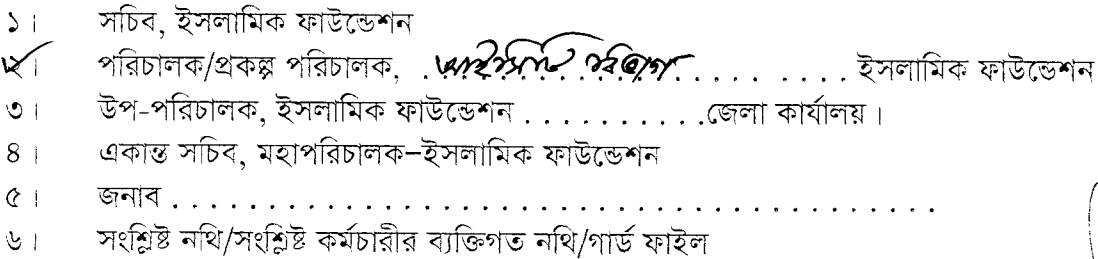 ১। সচিব, ইসলামিক ফাউন্ডেশন
২। পরিচালক/প্রকল্প পরিচালক, আইসিটি বিভাগ . . . . . . . . ইসলামিক ফাউন্ডেশন
৩। উপ-পরিচালক, ইসলামিক ফাউন্ডেশন . . . . . . . . . .জেলা কার্যালয়।
৪। একান্ত সচিব, মহাপরিচালক–ইসলামিক ফাউন্ডেশন
৫। জনাব . . . . . . . . . . . . . . . . . . . . . . . . . . . . . . . . . . . . . .
৬। সংশ্লিষ্ট নথি/সংশ্লিষ্ট কর্মচারীর ব্যক্তিগত নথি/গার্ড ফাইল